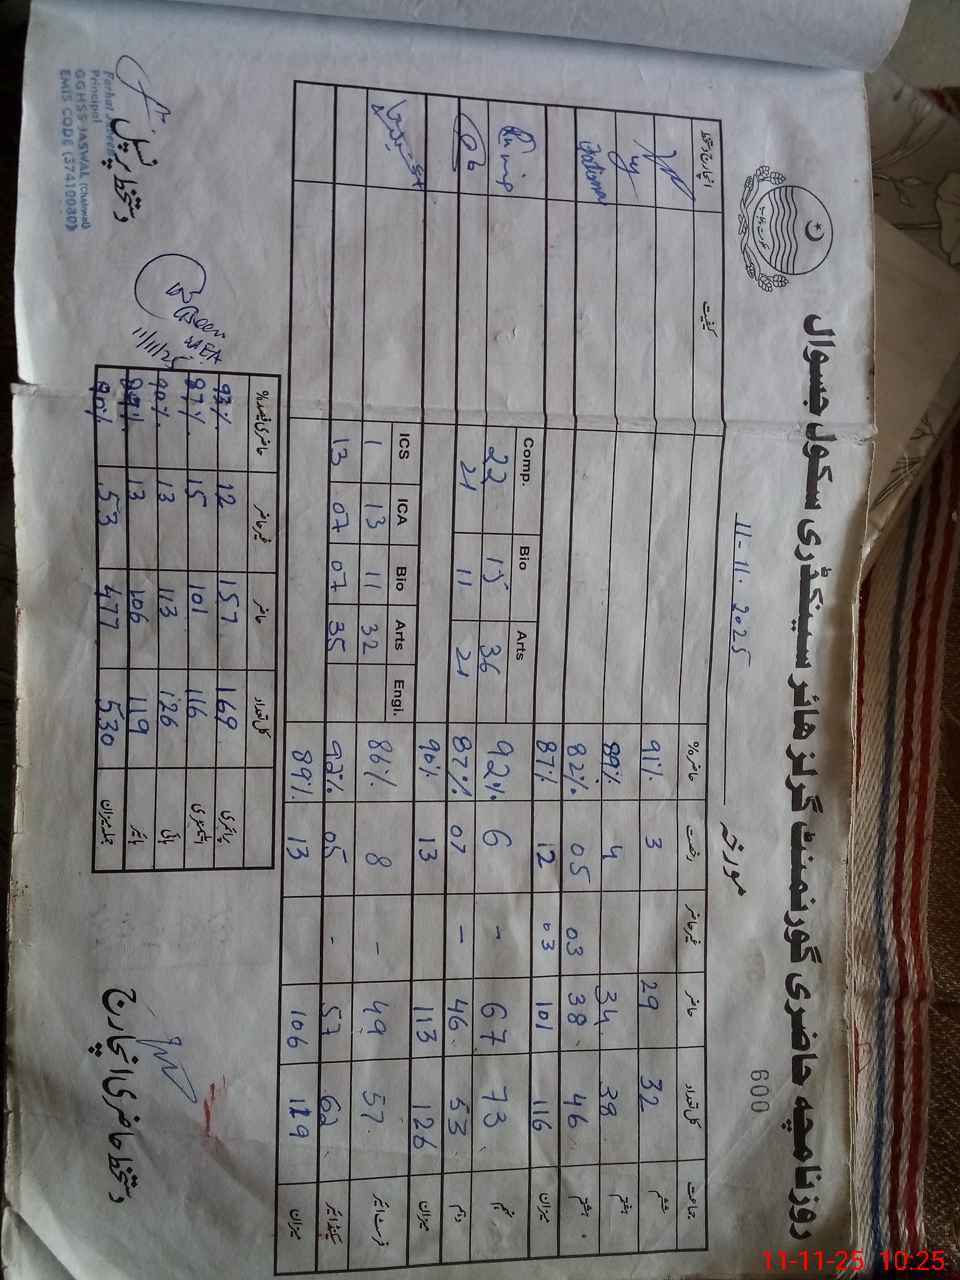 روزنامچہ حاضری گورنمنٹ گرلز ہائر سیکنڈری سکول جسوال
600
مورخہ 11-11-2025
جماعت کل تعداد حاضر غیر حاضر رخصت حاضر% کیفیت انچارج دستخط
ششم 32 29 3 91%
ہفتم 38 34 4 89%
ہشتم 46 38 03 05 82%
میزان 116 101 03 12 87%
Arts Bio Comp.
نہم 73 67 - 6 92% 36 15 22
دہم 53 46 - 07 87% 21 11 21
میزان 126 113 13 90%
Engi. Arts Bio ICA ICS
فرسٹ ائیر 57 49 - 8 86% 32 11 13 1
سیکنڈ ائیر 62 57 - 05 92% 35 07 07 13
میزان 119 106 13 89%
کل تعداد حاضر غیر حاضر حاضری فیصد%
پرائمری 169 157 12 93%
ایلیمنٹری 116 101 15 87%
ہائی 126 113 13 90%
ہائیر 119 106 13 89%
جملہ میزان 530 477 53 90%
MEA
11/11/25
دستخط حاضری انچارج
دستخط پرنسپل
Principal
GGHSS JASWAL (Chakwal)
EMIS CODE (37410080)
11-11-25 10:25